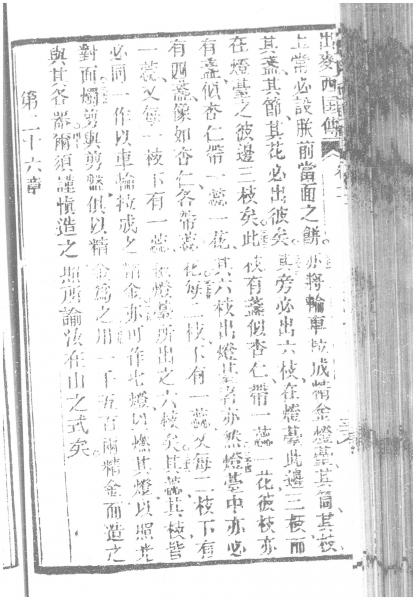 出麥西國傳
上常必設朕前當面之餅亦將輪車拉成精金燈臺其筒其枝
其盞其節其花必出彼矣其旁必出六枝在燈臺此邊三枝而
在燈臺之彼邊三枝矣此枝有盞似杏仁帶一蕊一花彼枝亦
有盞似杏仁帶一蕊一花其六枝出燈臺者亦然燈臺中亦必
有四盞像如杏仁各帶蕊花每二枝下有一蕊又每二枝下有
一蕊又每二枝下有一蕊燈臺所出之六枝矣其蕊其枝皆
必同一作以車輪拉成之精金亦可作七燈以燃其燈以照光
對面燭剪與剪盤俱以精金爲之用一千五百兩精金而造之
與其各器爾須謹愼造之照所諭汝在山之式矣
第二十六章